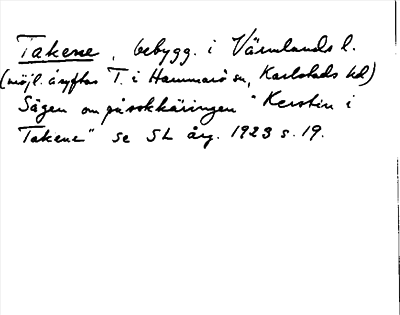 Takene, bebygg. i Värmlands l.
(möjl. åsyftas T. i Hammarö sn, Karlstads hd)
Sägen om påsokkäringen "Kerstin i
Takene" se SL årg. 1923 s. 19.